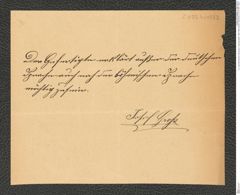 Der Gefertigte erklärt außer der deutschen
Sprache auch noch der böhmischen Sprache
mächtig zu sein.
Josef